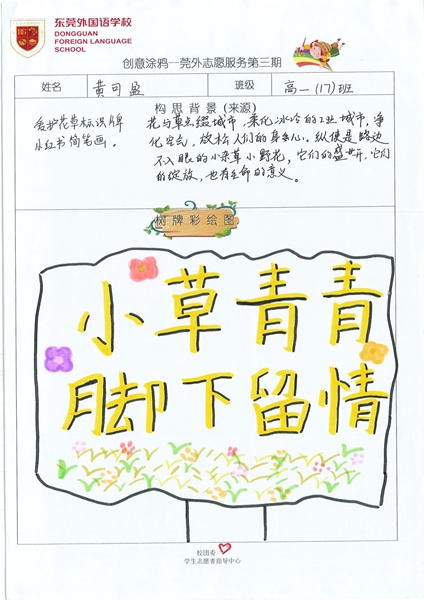 东莞外国语学校
DONGGUAN
FOREIGN LANGUAGE
SCHOOL
创意涂鸦—莞外志愿服务第三期
姓名
黄可盈
班级
高一(17)班
构思背景(来源)
爱护花草标识牌
小红书简笔画。
花与草点缀城市,柔化冰冷的工业城市,净
化空气,放松人们的身与心。纵使是路边
不入眼的小杂草小野花,它们的盛开,它们
的绽放,也有生命的意义。
树牌彩绘图
小草青青
脚下留情
校团委
学生志愿者指导中心